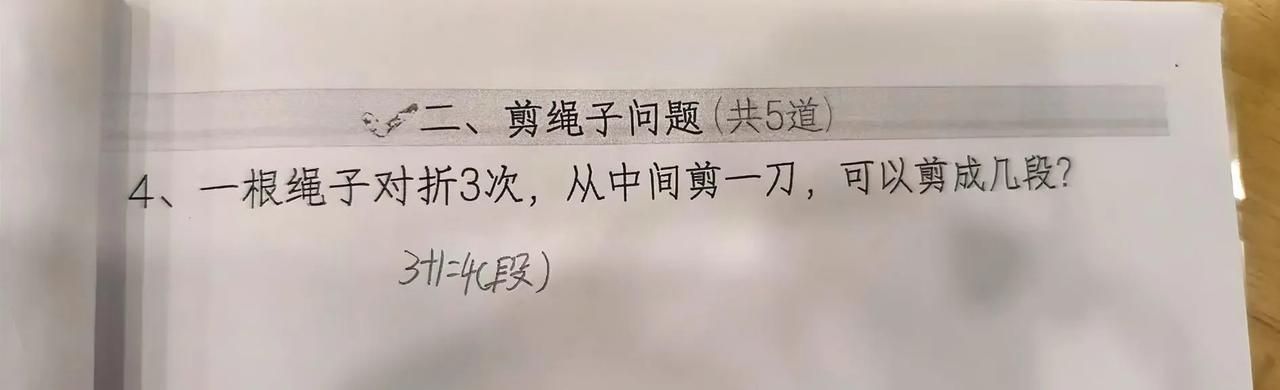 二、剪绳子问题(共5道)
4、一根绳子对折3次，从中间剪一刀，可以剪成几段?
3+1=4(段)